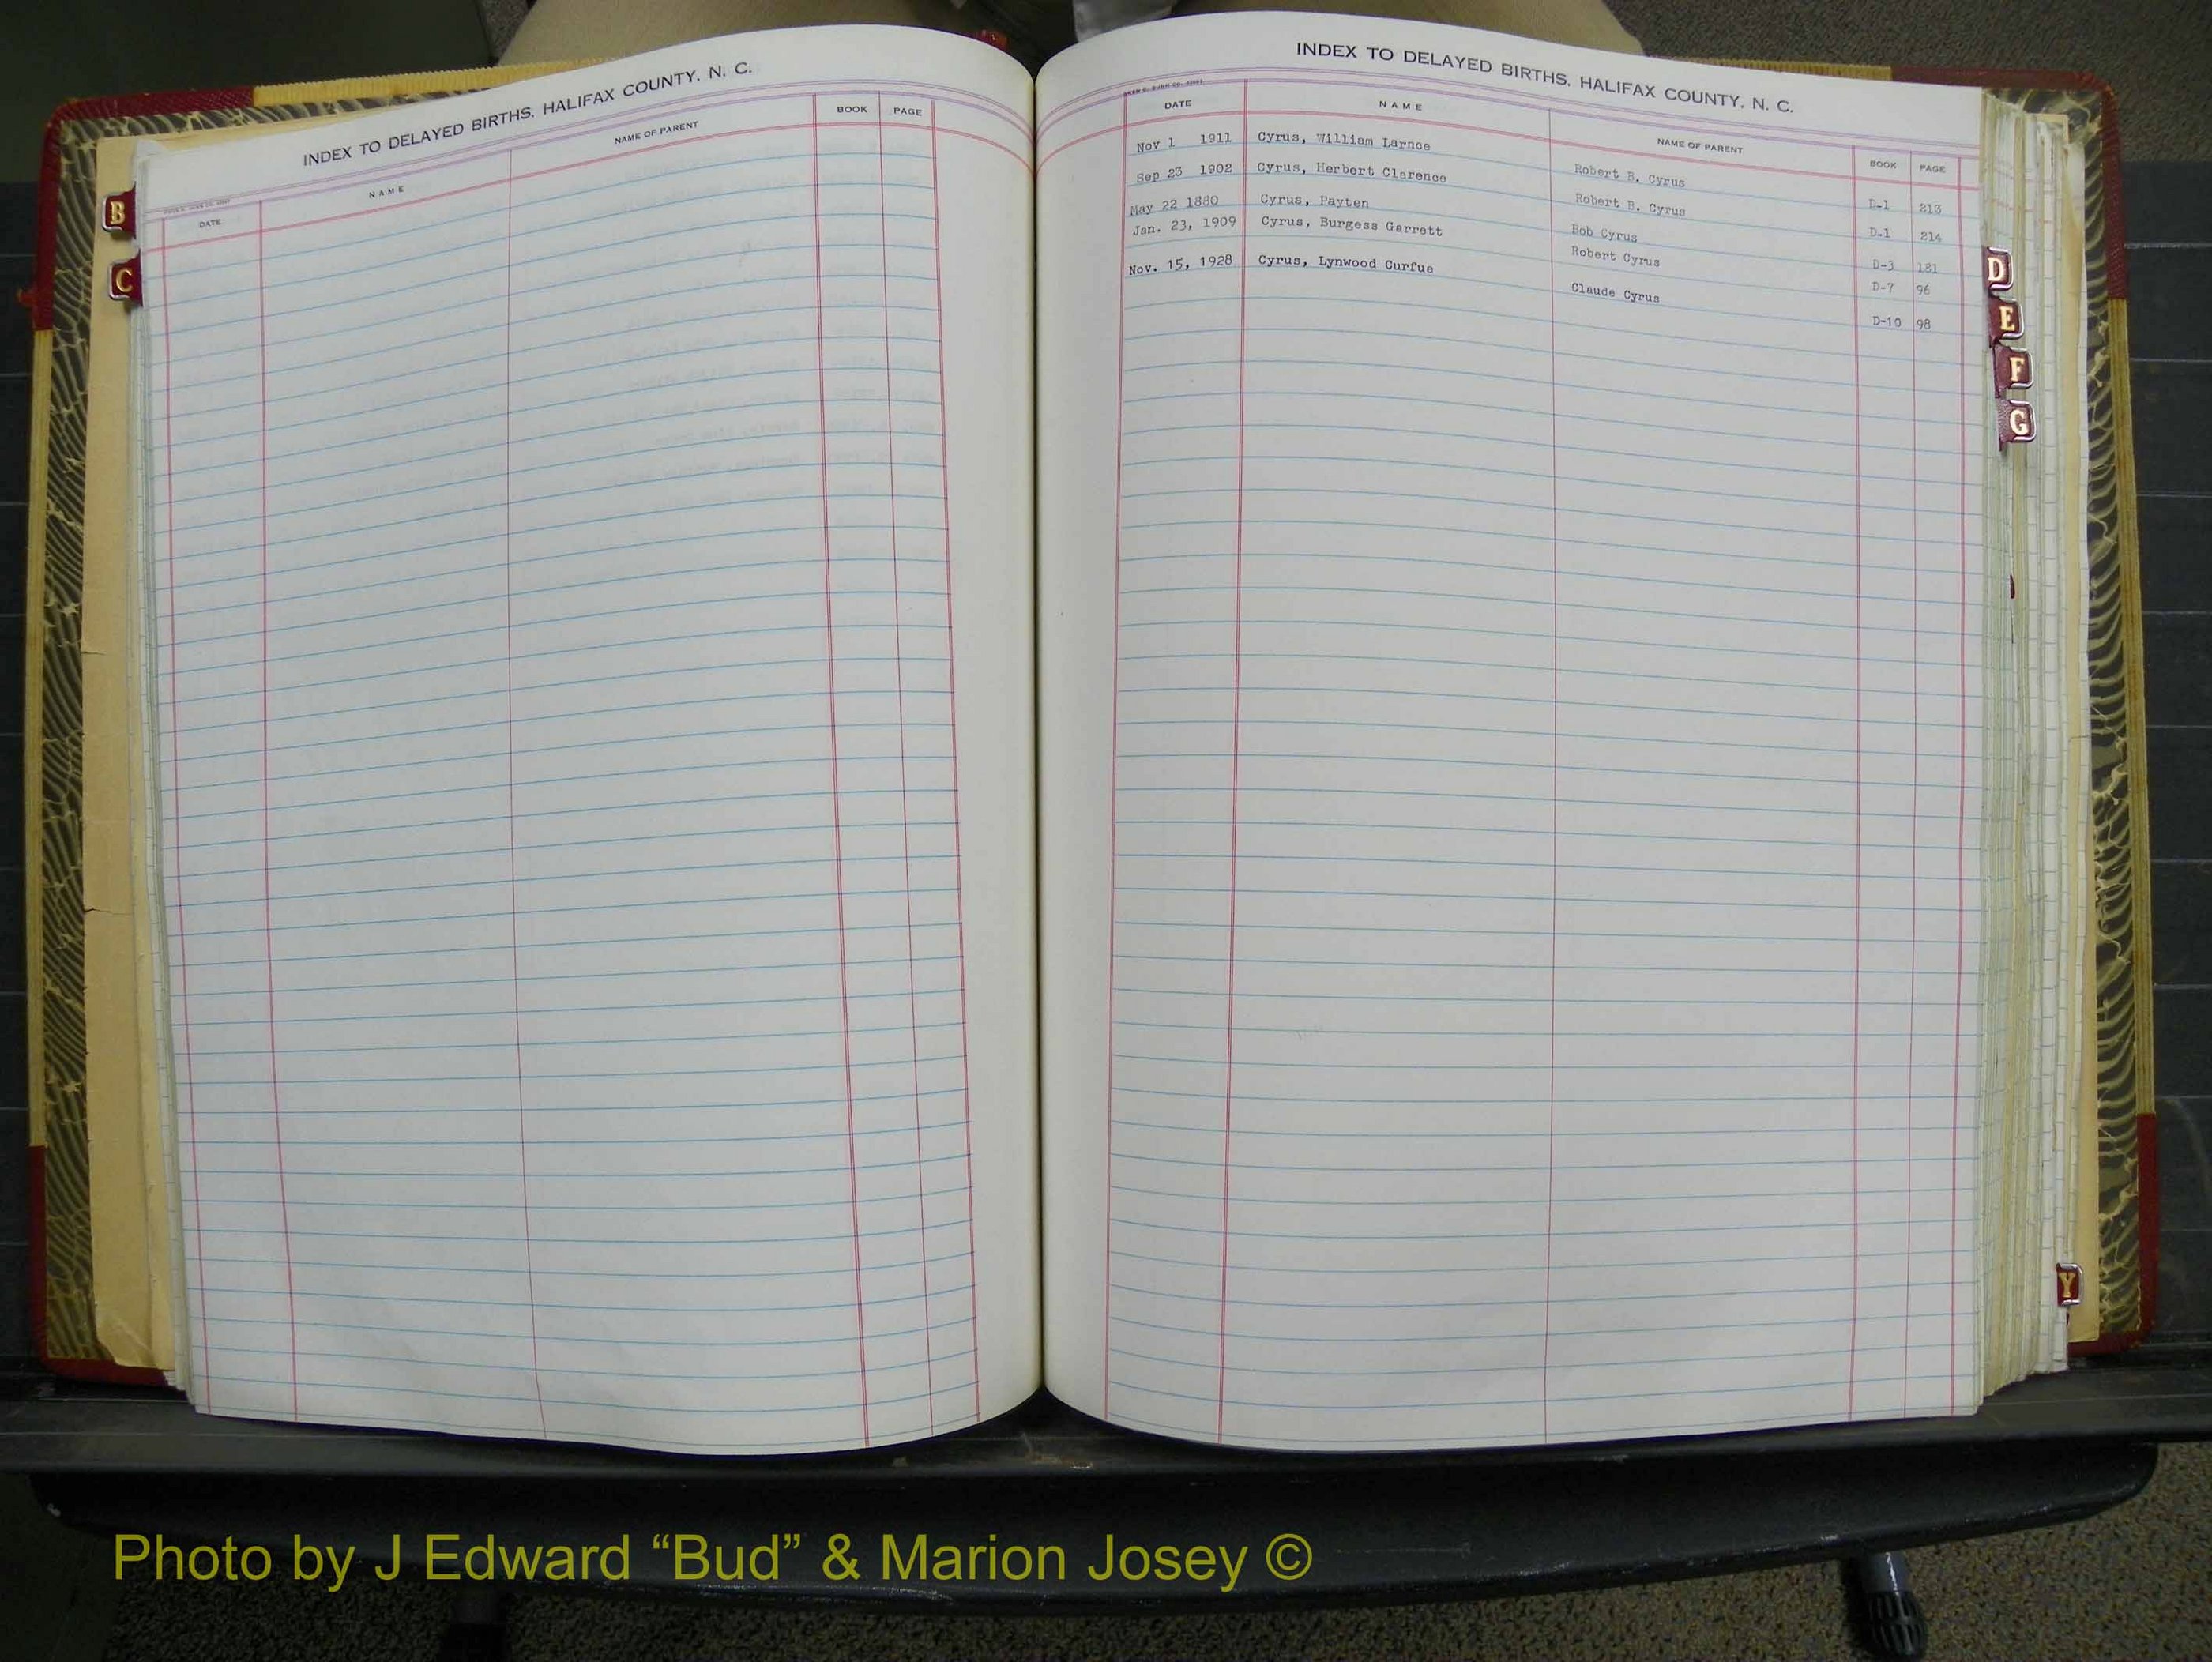 INDEX TO DELAYED BIRTHS. HALIFAX COUNTY. N. C.
DATE NAME NAME OF PARENT BOOK PAGE
B
C
INDEX TO DELAYED BIRTHS. HALIFAX COUNTY. N. C.
DATE NAME NAME OF PARENT BOOK PAGE
Nov 1 1911 Cyrus, William Larnce Robert B. Cyrus D-1 213
Sep 23 1902 Cyrus, Herbert Clarence Robert B. Cyrus D-1 214
May 22 1880 Cyrus, Payten Bob Cyrus D-3 181
Jan. 23, 1909 Cyrus, Burgess Garrett Robert Cyrus D-7 96
Nov. 15, 1928 Cyrus, Lynwood Curfue Claude Cyrus D-10 98
D
E
F
G
Y
Photo by J Edward “Bud” & Marion Josey ©